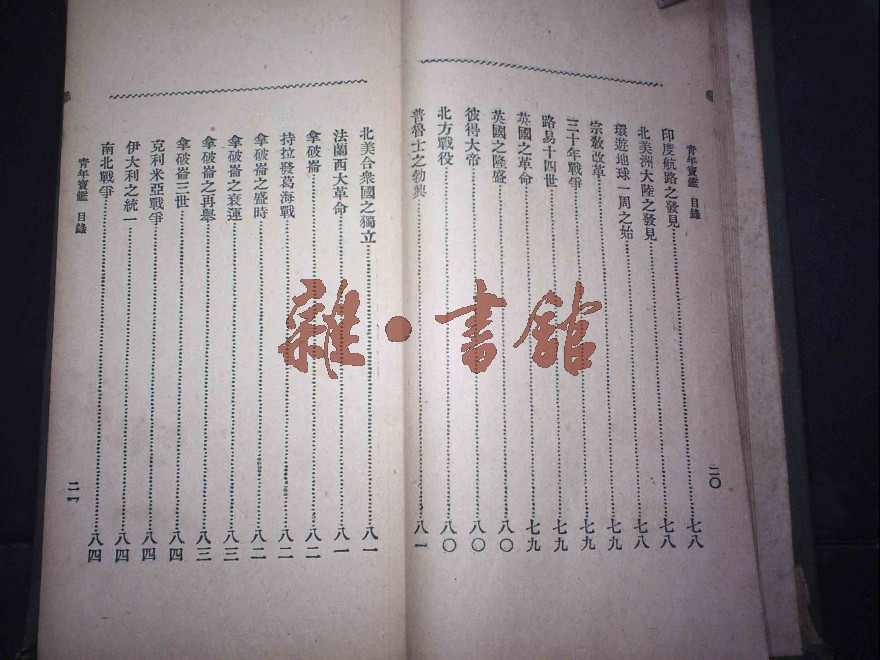 青年寶鑑 目錄
印度航路之發見……七八
北美洲大陸之發見……七八
環遊地球一周之始……七八
宗敎改革……七九
三十年戰爭……七九
路易十四世……七九
英國之革命……七九
英國之隆盛……八〇
彼得大帝……八〇
北方戰役……八〇
普魯士之勃興……八一
二〇
北美合衆國之獨立……八一
法蘭西大革命……八一
拿破崙……八二
特拉發葛海戰……八二
拿破崙之盛時……八二
拿破崙之衰運……八三
拿破崙之再舉……八三
拿破崙三世……八四
克利米亞戰爭……八四
伊大利之統一……八四
南北戰爭……八四
青年寶鑑 目錄
二一
雜·書館